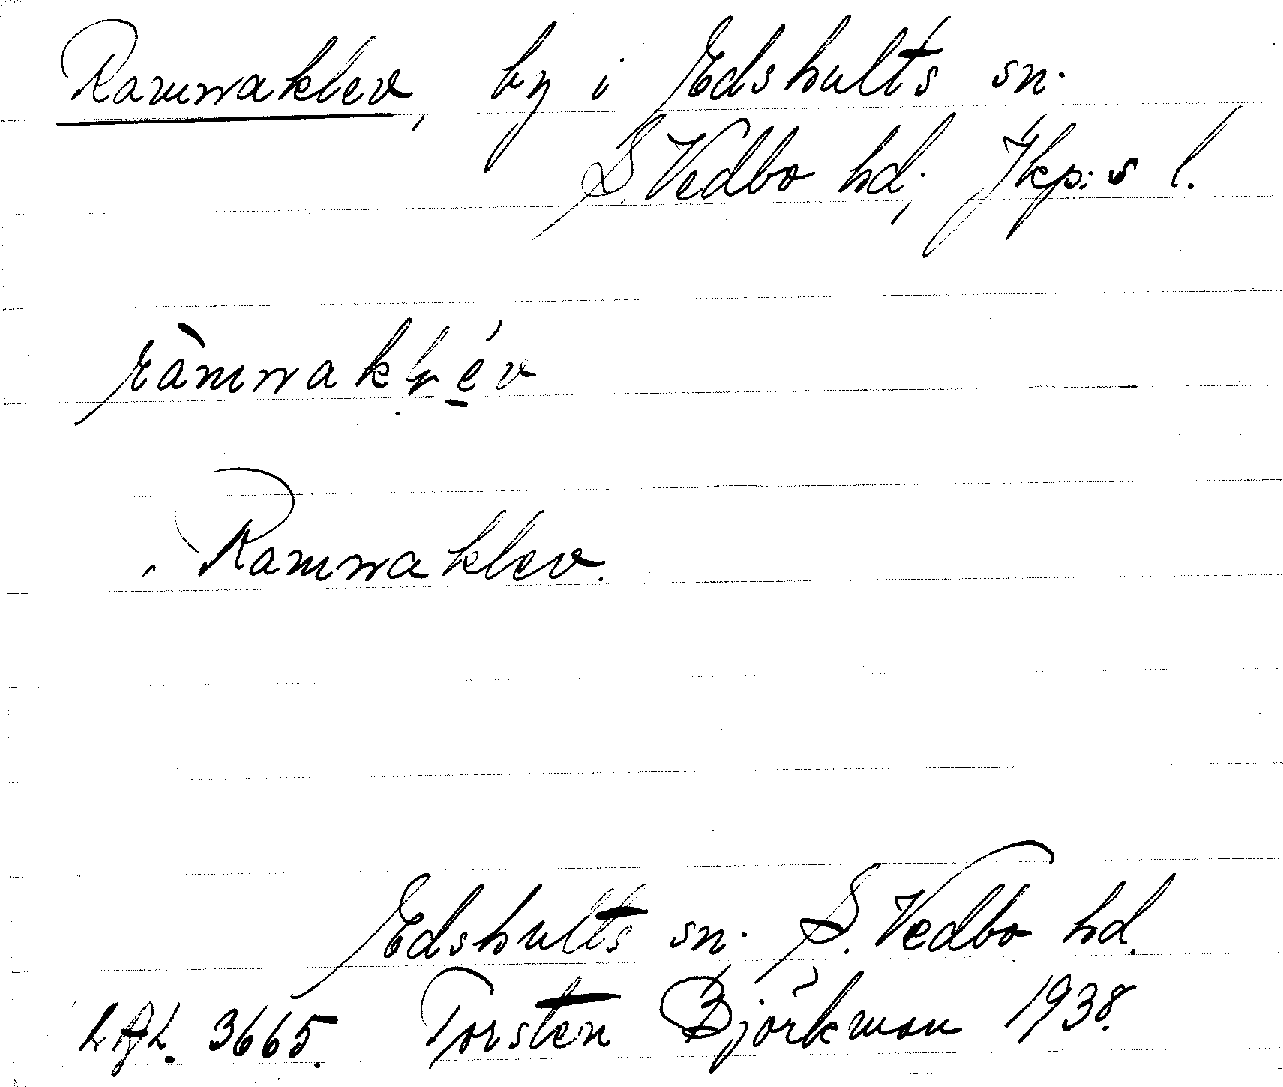 Ramnaklev, by i Edshults sn.
S. Vedbo hd; Jkp:s l.
Ramnaklev.
Edshults sn. S. Vedbo hd.
3665. Torsten Björkman 1938.